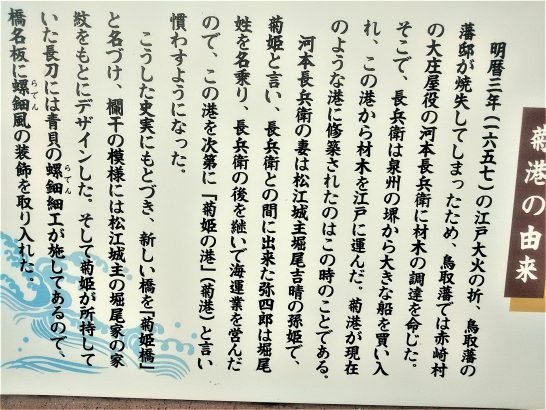 菊港の由来
明暦三年(一六五七)の江戸大火の折、鳥取藩の
藩邸が焼失してしまったため、鳥取藩では赤崎村
の大庄屋役の河本長兵衛に材木の調達を命じた。
そこで、長兵衛は泉州の堺から大きな船を買い入
れ、この港から材木を江戸に運んだ。菊港が現在
のような港に修築されたのはこの時のことである。
河本長兵衛の妻は松江城主堀尾吉晴の孫姫で、
菊姫と言い、長兵衛との間に出来た弥四郎は堀尾
姓を名乗り、長兵衛の後を継いで海運業を営んだ
ので、この港を次第に「菊姫の港」(菊港)と言い
慣わすようになった。
こうした史実にもとづき、新しい橋を「菊姫橋」
と名づけ、欄干の模様には松江城主の堀尾家の家
紋をもとにデザインした。そして菊姫が所持して
いた長刀には青貝の螺鈿細工が施してあるので、
らでん
橋名板に螺鈿風の装飾を取り入れた。
らでん